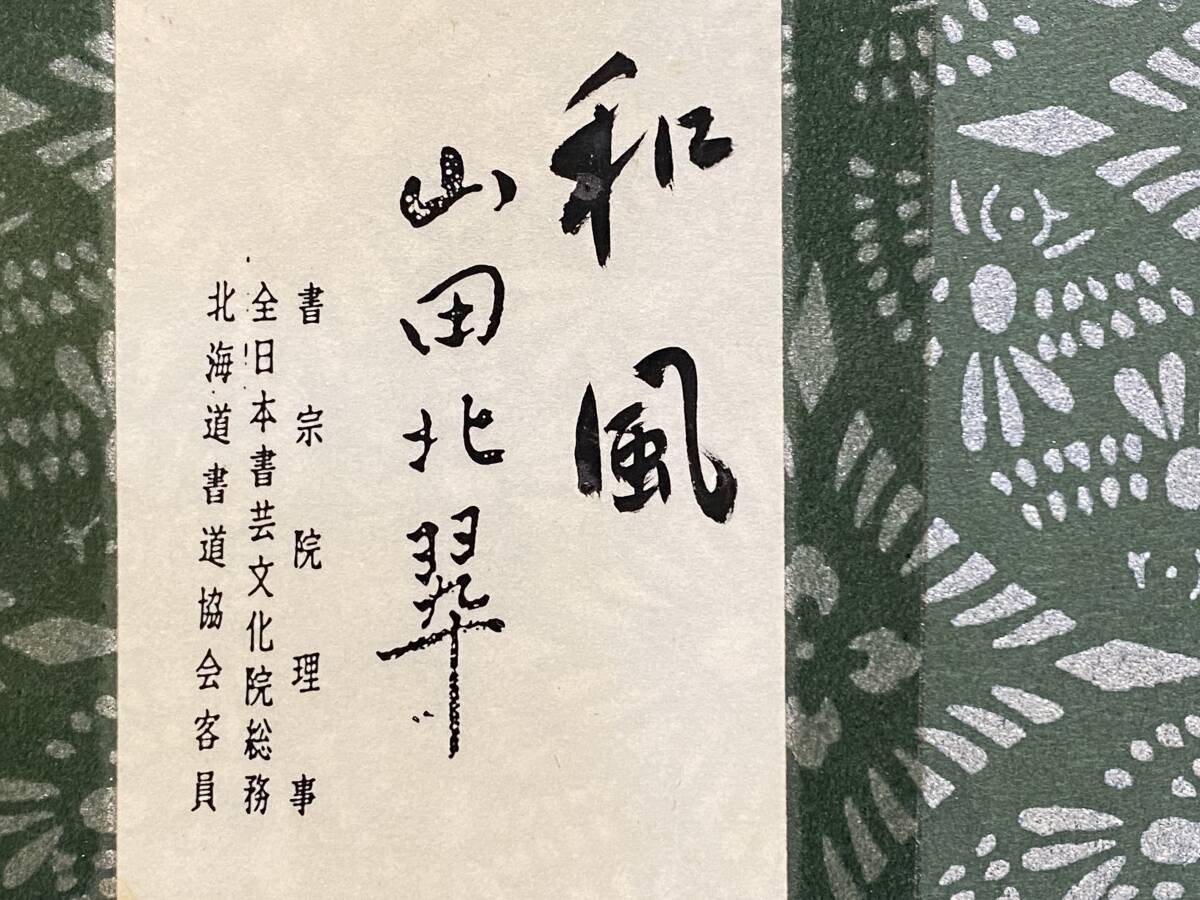 和風
山田北翠
書宗院理事
全日本書芸文化院総務
北海道書道協会客員